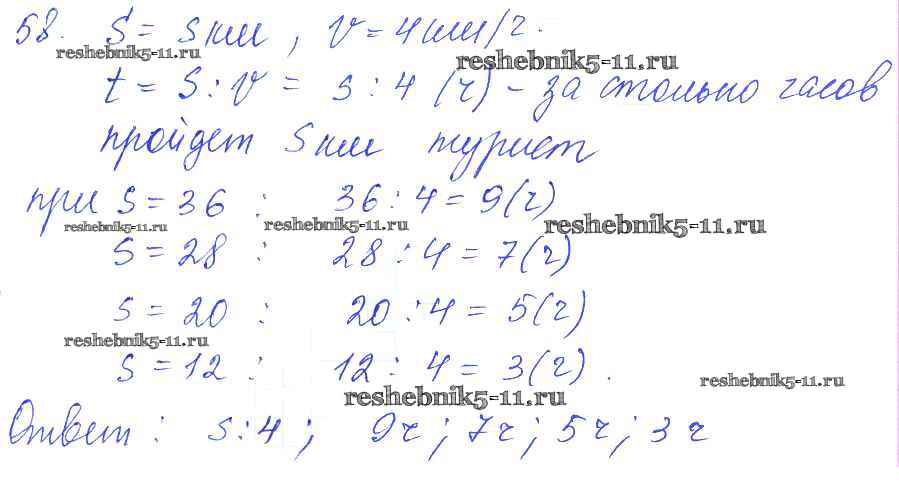 58. S = S км, v = 4 км/ч.
reshebnik5-11.ru reshebnik5-11.ru
t = S : v = s : 4 (ч) - за столько часов
пройдет S км турист
при S = 36 : 36 : 4 = 9 (ч)
reshebnik5-11.ru reshebnik5-11.ru reshebnik5-11.ru
S = 28 : 28 : 4 = 7 (ч)
S = 20 : 20 : 4 = 5 (ч)
reshebnik5-11.ru
S = 12 : 12 : 4 = 3 (ч).
reshebnik5-11.ru reshebnik5-11.ru
Ответ : s : 4 ; 9 ч ; 7 ч ; 5 ч ; 3 ч